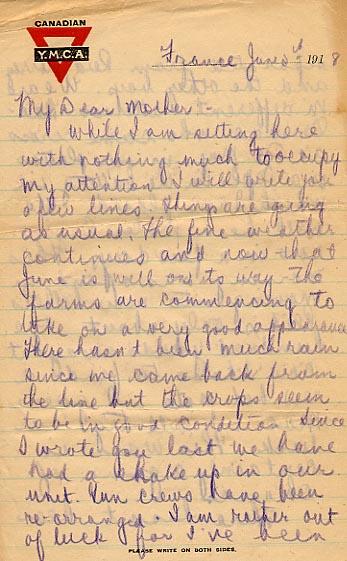 CANADIAN
Y.M.C.A.
France June 1918
My Dear Mother:-
While I am sitting here
with nothing much to occupy
my attention I will write you
a few lines. Things are going
as usual, the fine weather
continues and now that
June is well on its way the
farms are commencing to
take on a very good appearance
There hasn't been much rain
since we came back from
the line but the crops seem
to be in good condition. Since
I wrote you last we have
had a shake up in our
unit. Gun crews have been
re-arranged. I am rather out
of luck for I've been
PLEASE WRITE ON BOTH SIDES.